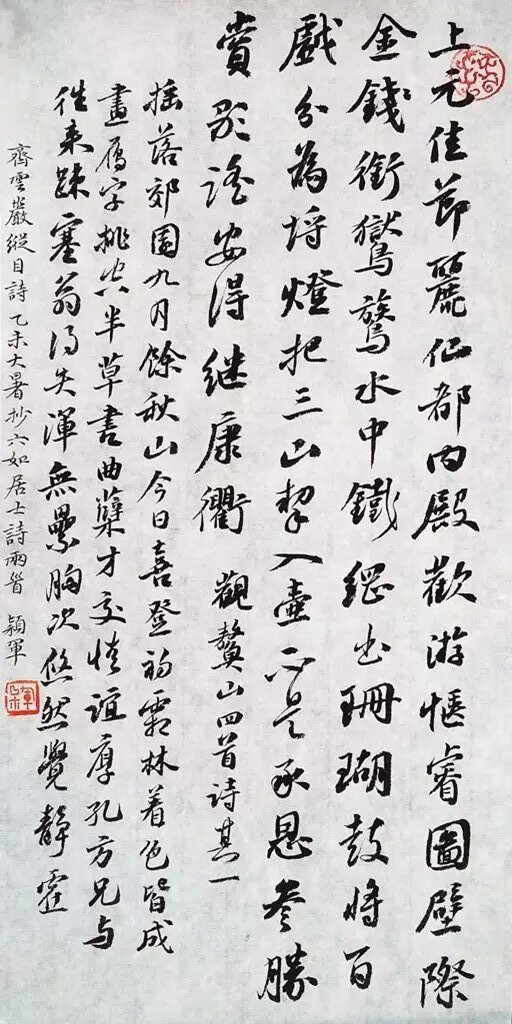 上元佳節麗仙都內殿歡游愜睿圖壁際
金錢銜鸑鷟水中鐵網出珊瑚鼓將百
戲分為埒燈把三山挈入壺不是承恩參勝
賞歌謠安得继康衢 觀鰲山四首詩其一
摇落郊園九月餘秋山今日喜登初霜林着色皆成
畫雁字排空半草書曲蘖才交情誼厚孔方兄与
往来疎塞翁得失渾無累胸次悠然覺靜虛
齊雲巖縱目詩 乙未大暑抄六如居士詩兩首 穎軍